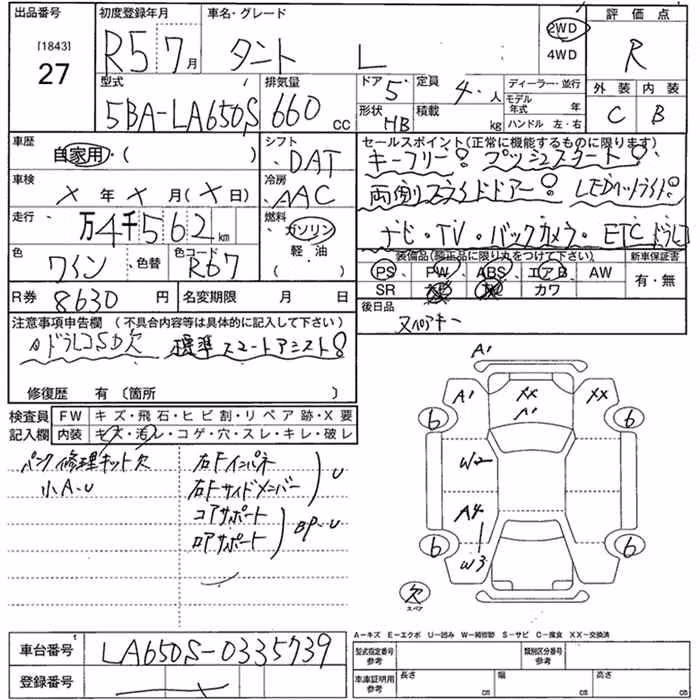 出品番号
[1843]
27
初度登録年月
R5 7月
車名・グレード
タント L
2WD
4WD
評価点
R
外装 内装
C B
型式
5BA-LA650S
排気量
660 cc
ドア 5
形状 HB
定員 4人
積載 kg
ディーラー・並行
モデル年式 年
ハンドル 左・右
車歴
自家用・( )
車検
× 年 × 月(× 日)
走行
万4千562km
色
ワイン
色替
色コード
R67
シフト
DAT
冷房
AAC
燃料
ガソリン
軽油
セールスポイント(正常に機能するものに限ります)
キーフリー! プッシュスタート!
両側スライドドアー! LEDヘッドライト!
ナビ・TV・バックカメラ・ETC ドラレコ
装備品(純正品に限り丸をつけて下さい)
PS PW ABS エアB AW
SR カワ
新車保証書
有・無
R券 8630円
名変期限 月 日
後日品
スペアキー
注意事項申告欄(不具合内容等は具体的に記入して下さい)
ドラレコSD欠 標準 スマートアシスト!
修復歴 有(箇所 )
検査員記入欄
FW キズ・飛石・ヒビ割・リペア跡・X要
内装 キズ・汚レ・コゲ・穴・スレ・キレ・破レ
パンク修理キット欠
小A・U
右Fインパネ
右Fサイドメンバー
U
コアサポート
ロアサポート
BP・U
A1
A1
XX
A1
XX
6
6
W2
A4
W3
6
6
欠
スペア
A-キズ E-エクボ U-凹み W-補修跡 S-サビ C-腐食 XX-交換済
車台番号
LA650S-0335739
登録番号
型式指定番号
参考
類別区分番号
参考
車庫証明用
参考
長さ cm
幅 cm
高さ cm